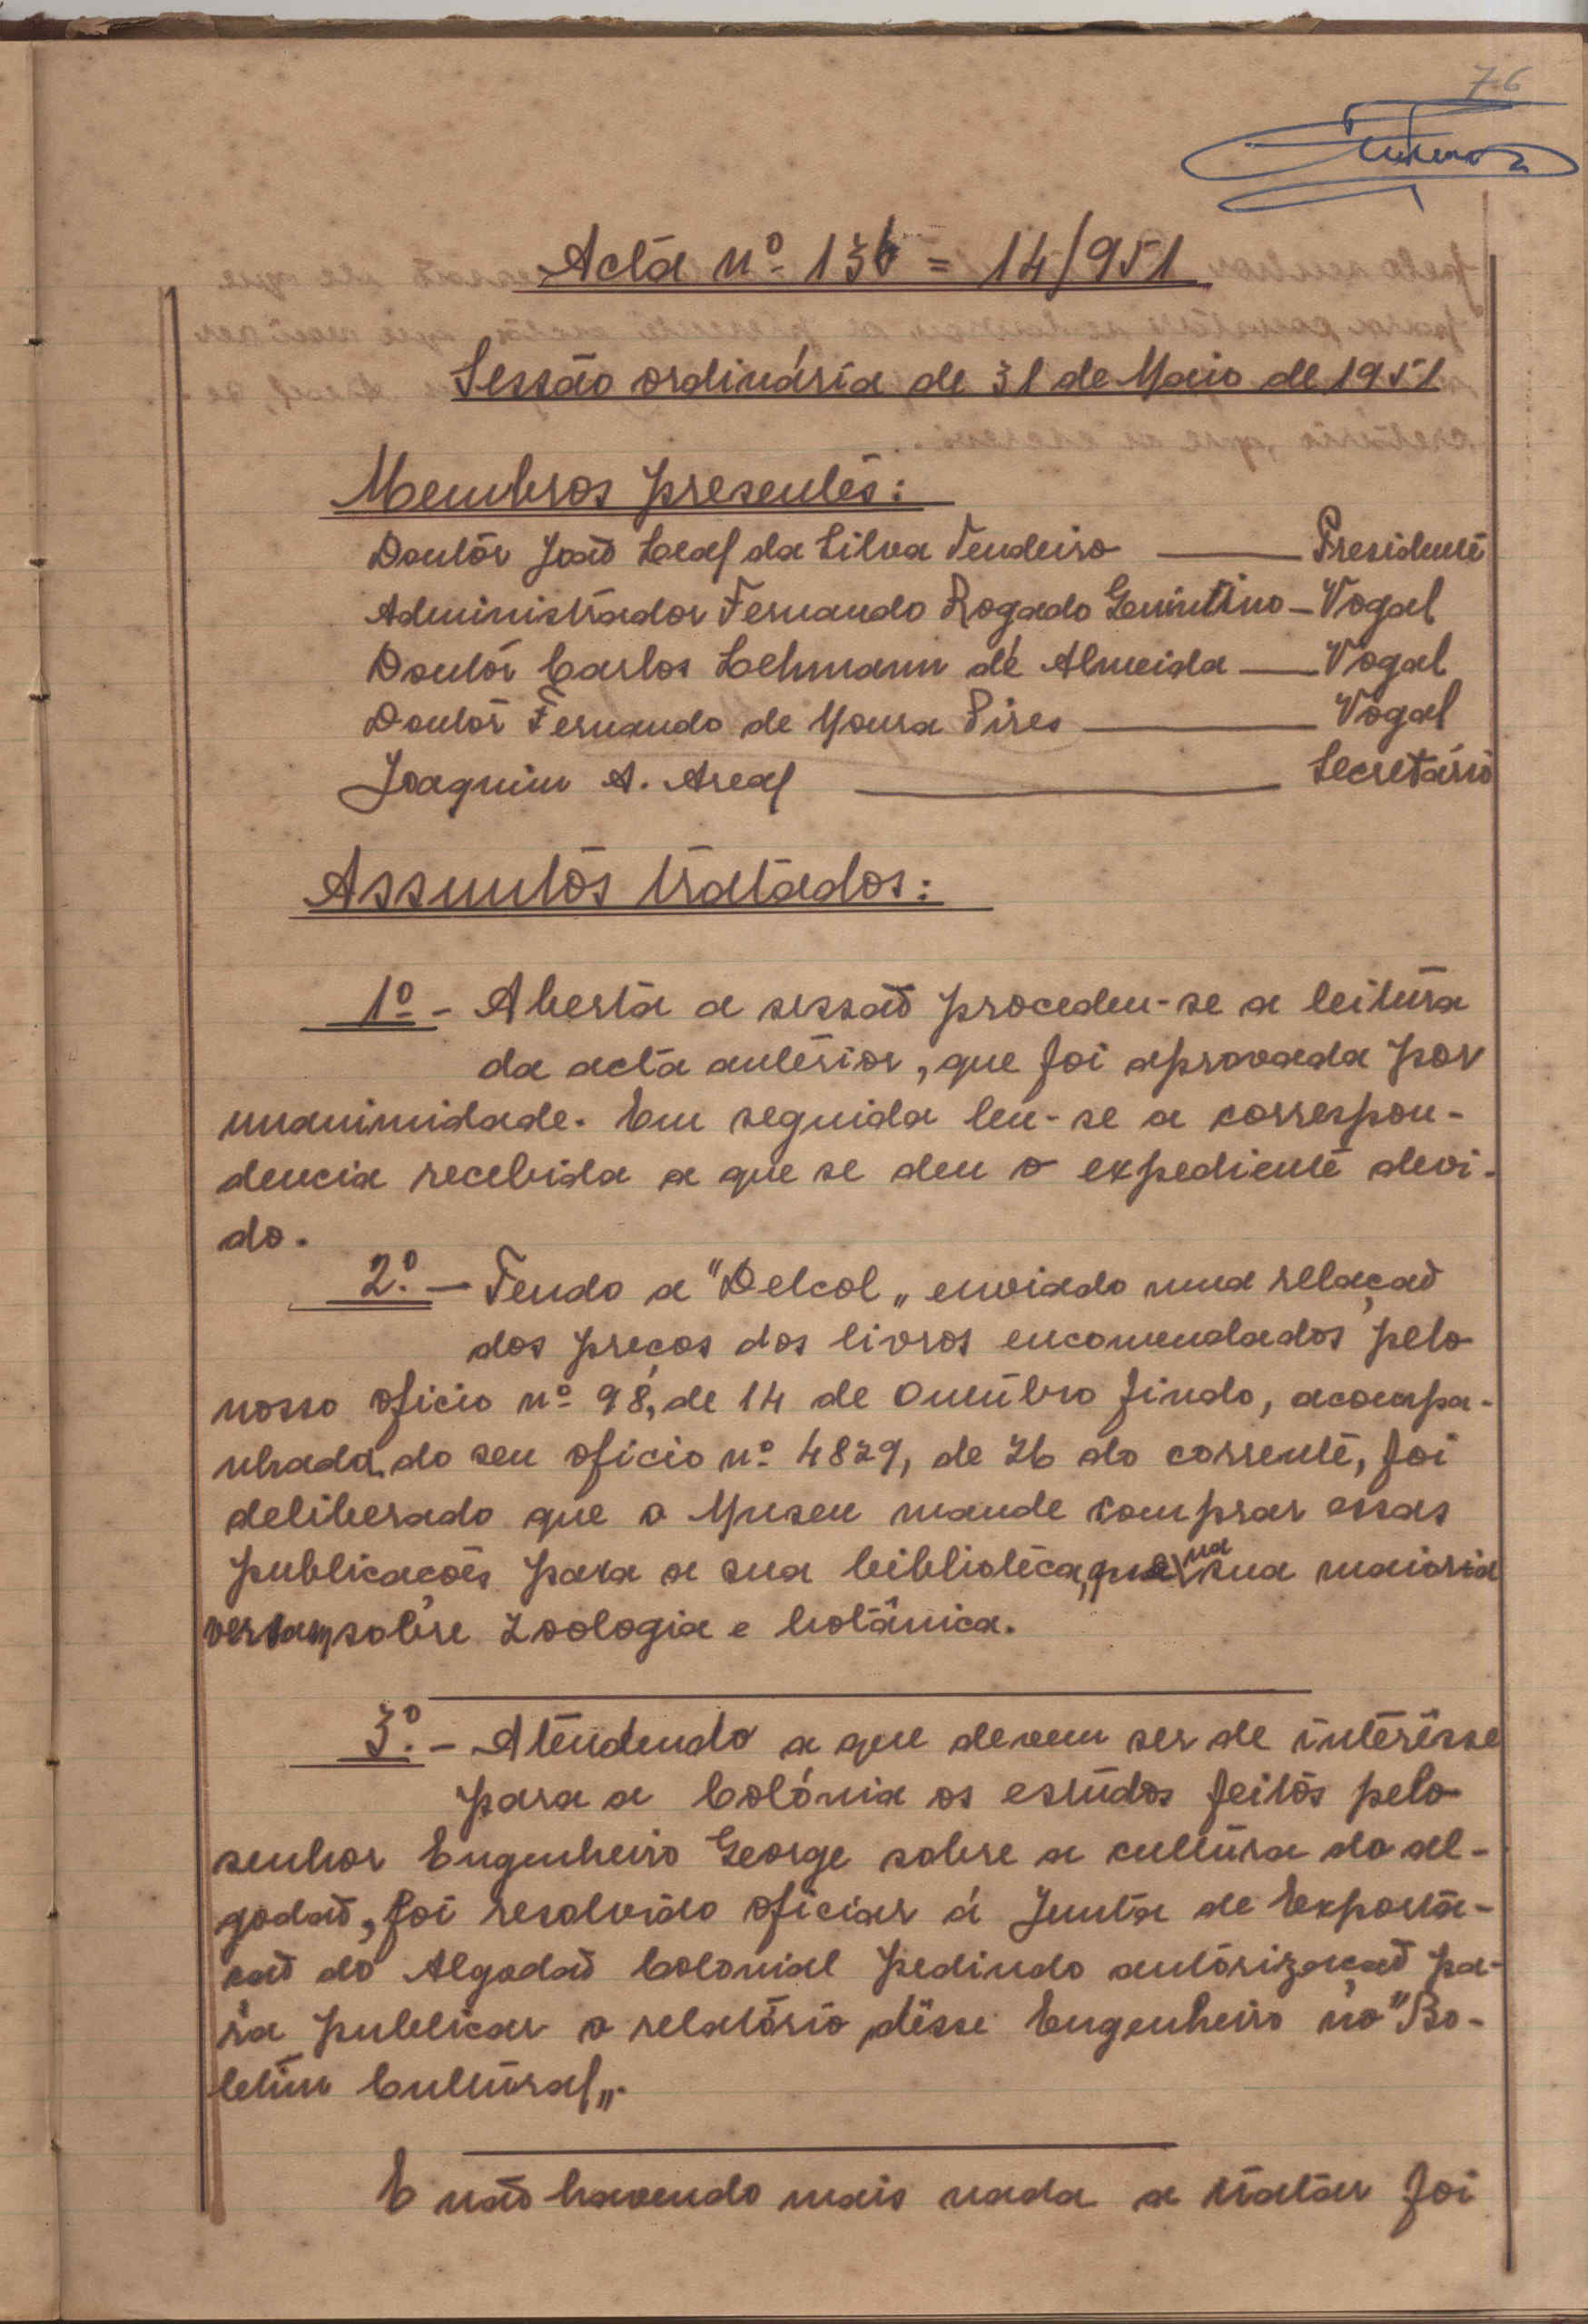 76
Acta nº 136 = 14/951
Sessão ordinária de 31 de Maio de 1951
Membros presentes:
Doutor João Leal da Silva Tendeiro — Presidente
Administrador Fernando Rogado Quintino — Vogal
Doutor Carlos Lehmann de Almeida — Vogal
Doutor Fernando de Moura Pires — Vogal
Joaquim A. Areal — Secretário
Assuntos tratados:
1º - Aberta a sessão procedeu-se a leitura
da acta anterior, que foi aprovada por
unanimidade. Em seguida leu-se a correspon-
dencia recebida a que se deu o expediente devi-
do.
2.º - Tendo a "Delcol" enviado uma relação
dos preços dos livros encomendados pelo
nosso oficio nº 98, de 14 de Outubro findo, acompa-
nhada do seu oficio nº 4829, de 26 do corrente, foi
deliberado que o Museu mande comprar essas
publicações para a sua biblioteca, que na sua maioria
versam sobre zoologia e botânica.
3.º - Atendendo a que devem ser de interêsse
para a Colónia os estudos feitos pelo
senhor Engenheiro George sobre a cultura do al-
godão, foi resolvido oficiar á Junta de Exporta-
ção do Algodão Colonial pedindo autorização pa-
ra publicar o relatório dêsse Engenheiro no "Bo-
letim Cultural".
E não havendo mais nada a tratar foi